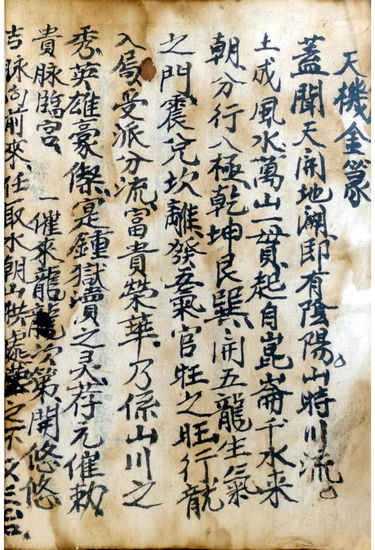 天機金篆
蓋聞天開地闢即有陰陽。山時川流。
土成風水萬山一貫起自崑崙千水来
朝分行八極乾坤艮巽開五龍生氣
之門震兌坎離發氣官旺之旺行龍
入焉受派分流富貴榮華乃係山川之
秀英雄豪傑寔鍾嶽瀆之灵荐元催勅
貴脉臨宮 一催来龍龍次第開悠悠
吉脉向前來任取水朝山拱處之不